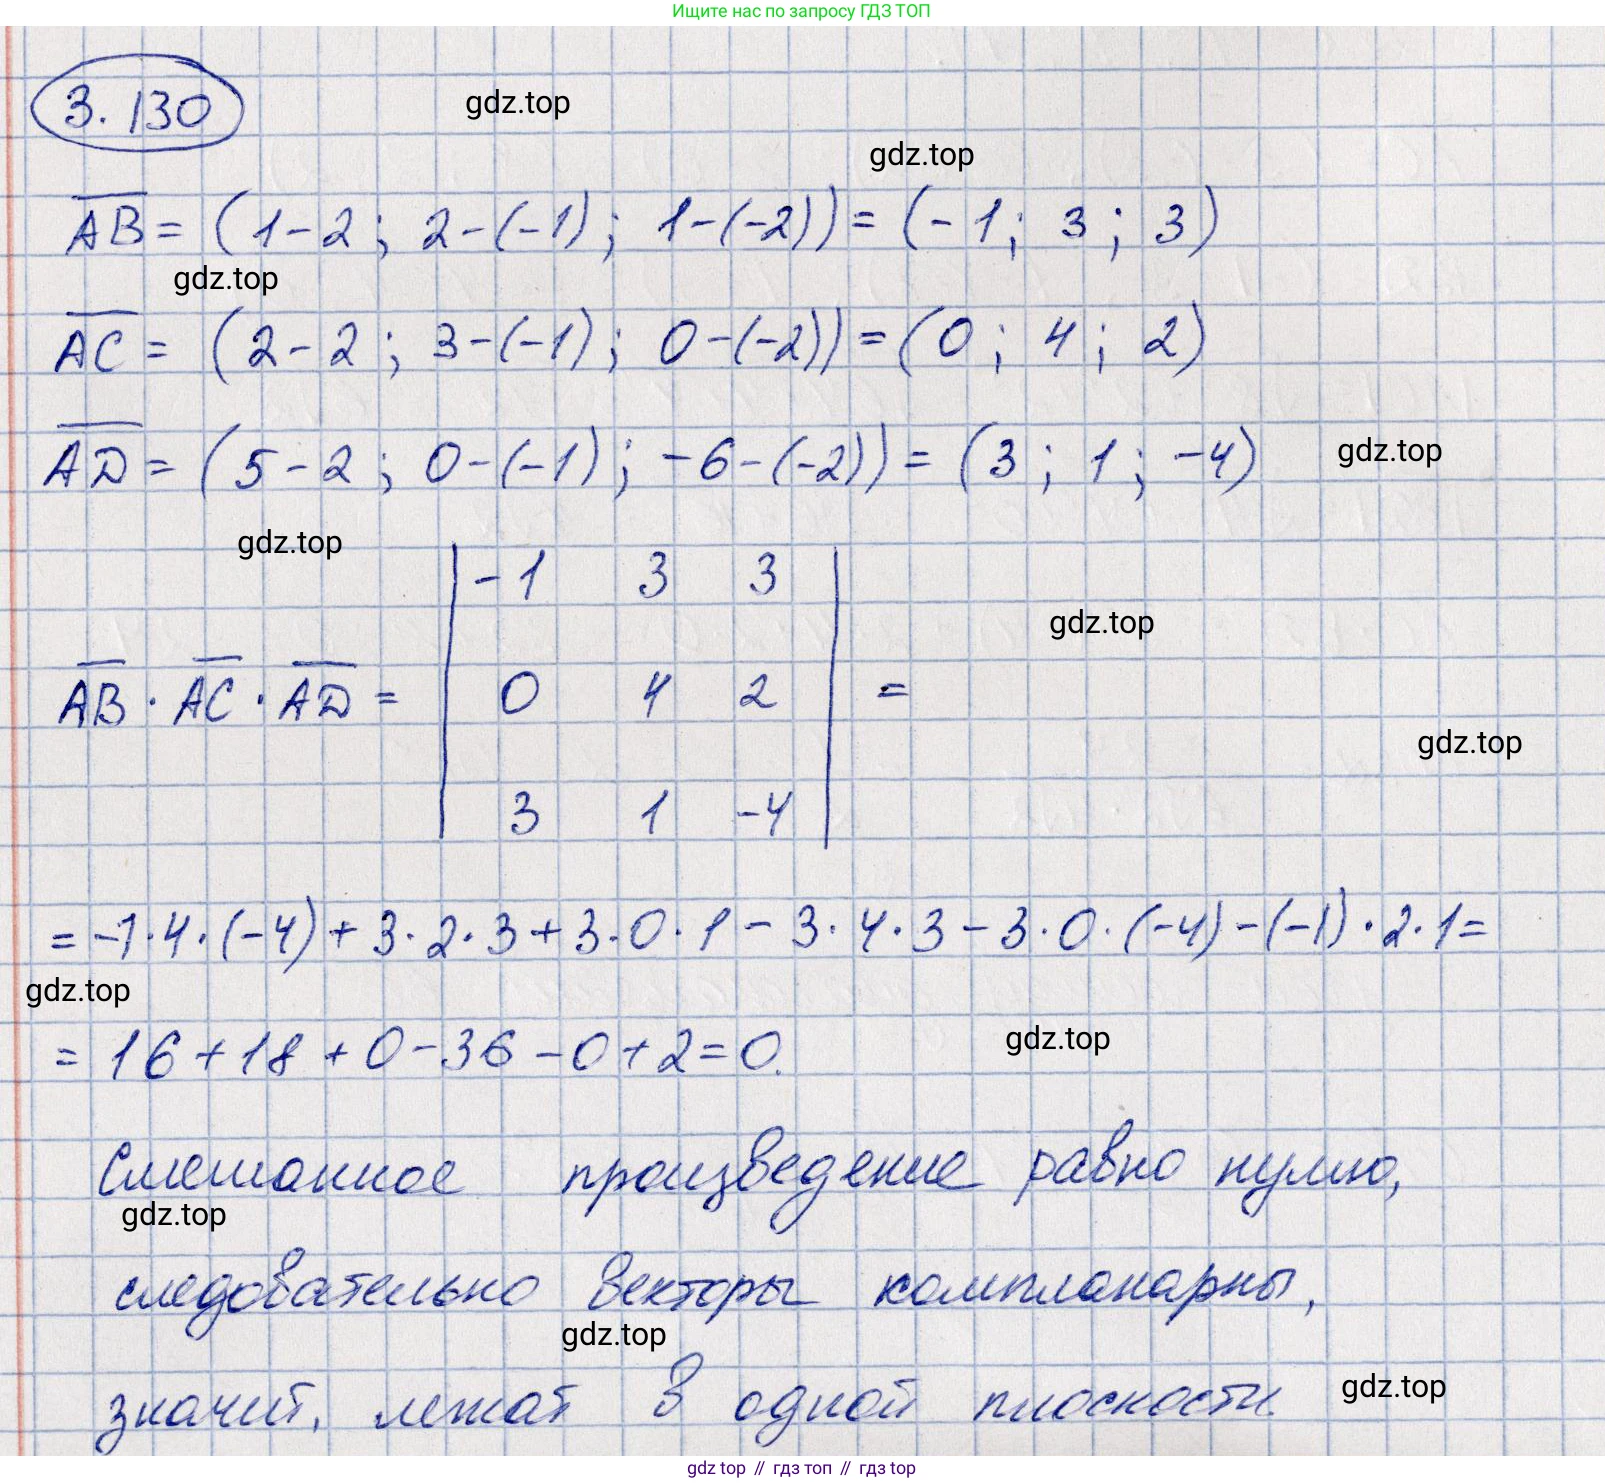 Ищите нас по запросу ГДЗ ТОП
3.130
gdz.top
gdz.top
AB = (1-2; 2-(-1); 1-(-2)) = (-1; 3; 3)
gdz.top
AC = (2-2; 3-(-1); 0-(-2)) = (0; 4; 2)
AD = (5-2; 0-(-1); -6-(-2)) = (3; 1; -4)
gdz.top
gdz.top
-1 3 3
gdz.top
AB · AC · AD = | 0 4 2 | =
gdz.top
3 1 -4
= -1·4·(-4) + 3·2·3 + 3·0·1 - 3·4·3 - 3·0·(-4) - (-1)·2·1 =
gdz.top
= 16 + 18 + 0 - 36 - 0 + 2 = 0.
gdz.top
Смешанное произведение равно нулю,
gdz.top
следовательно векторы компланарны,
gdz.top
значит, лежат в одной плоскости.
gdz.top
gdz top // гдз топ // гдз top